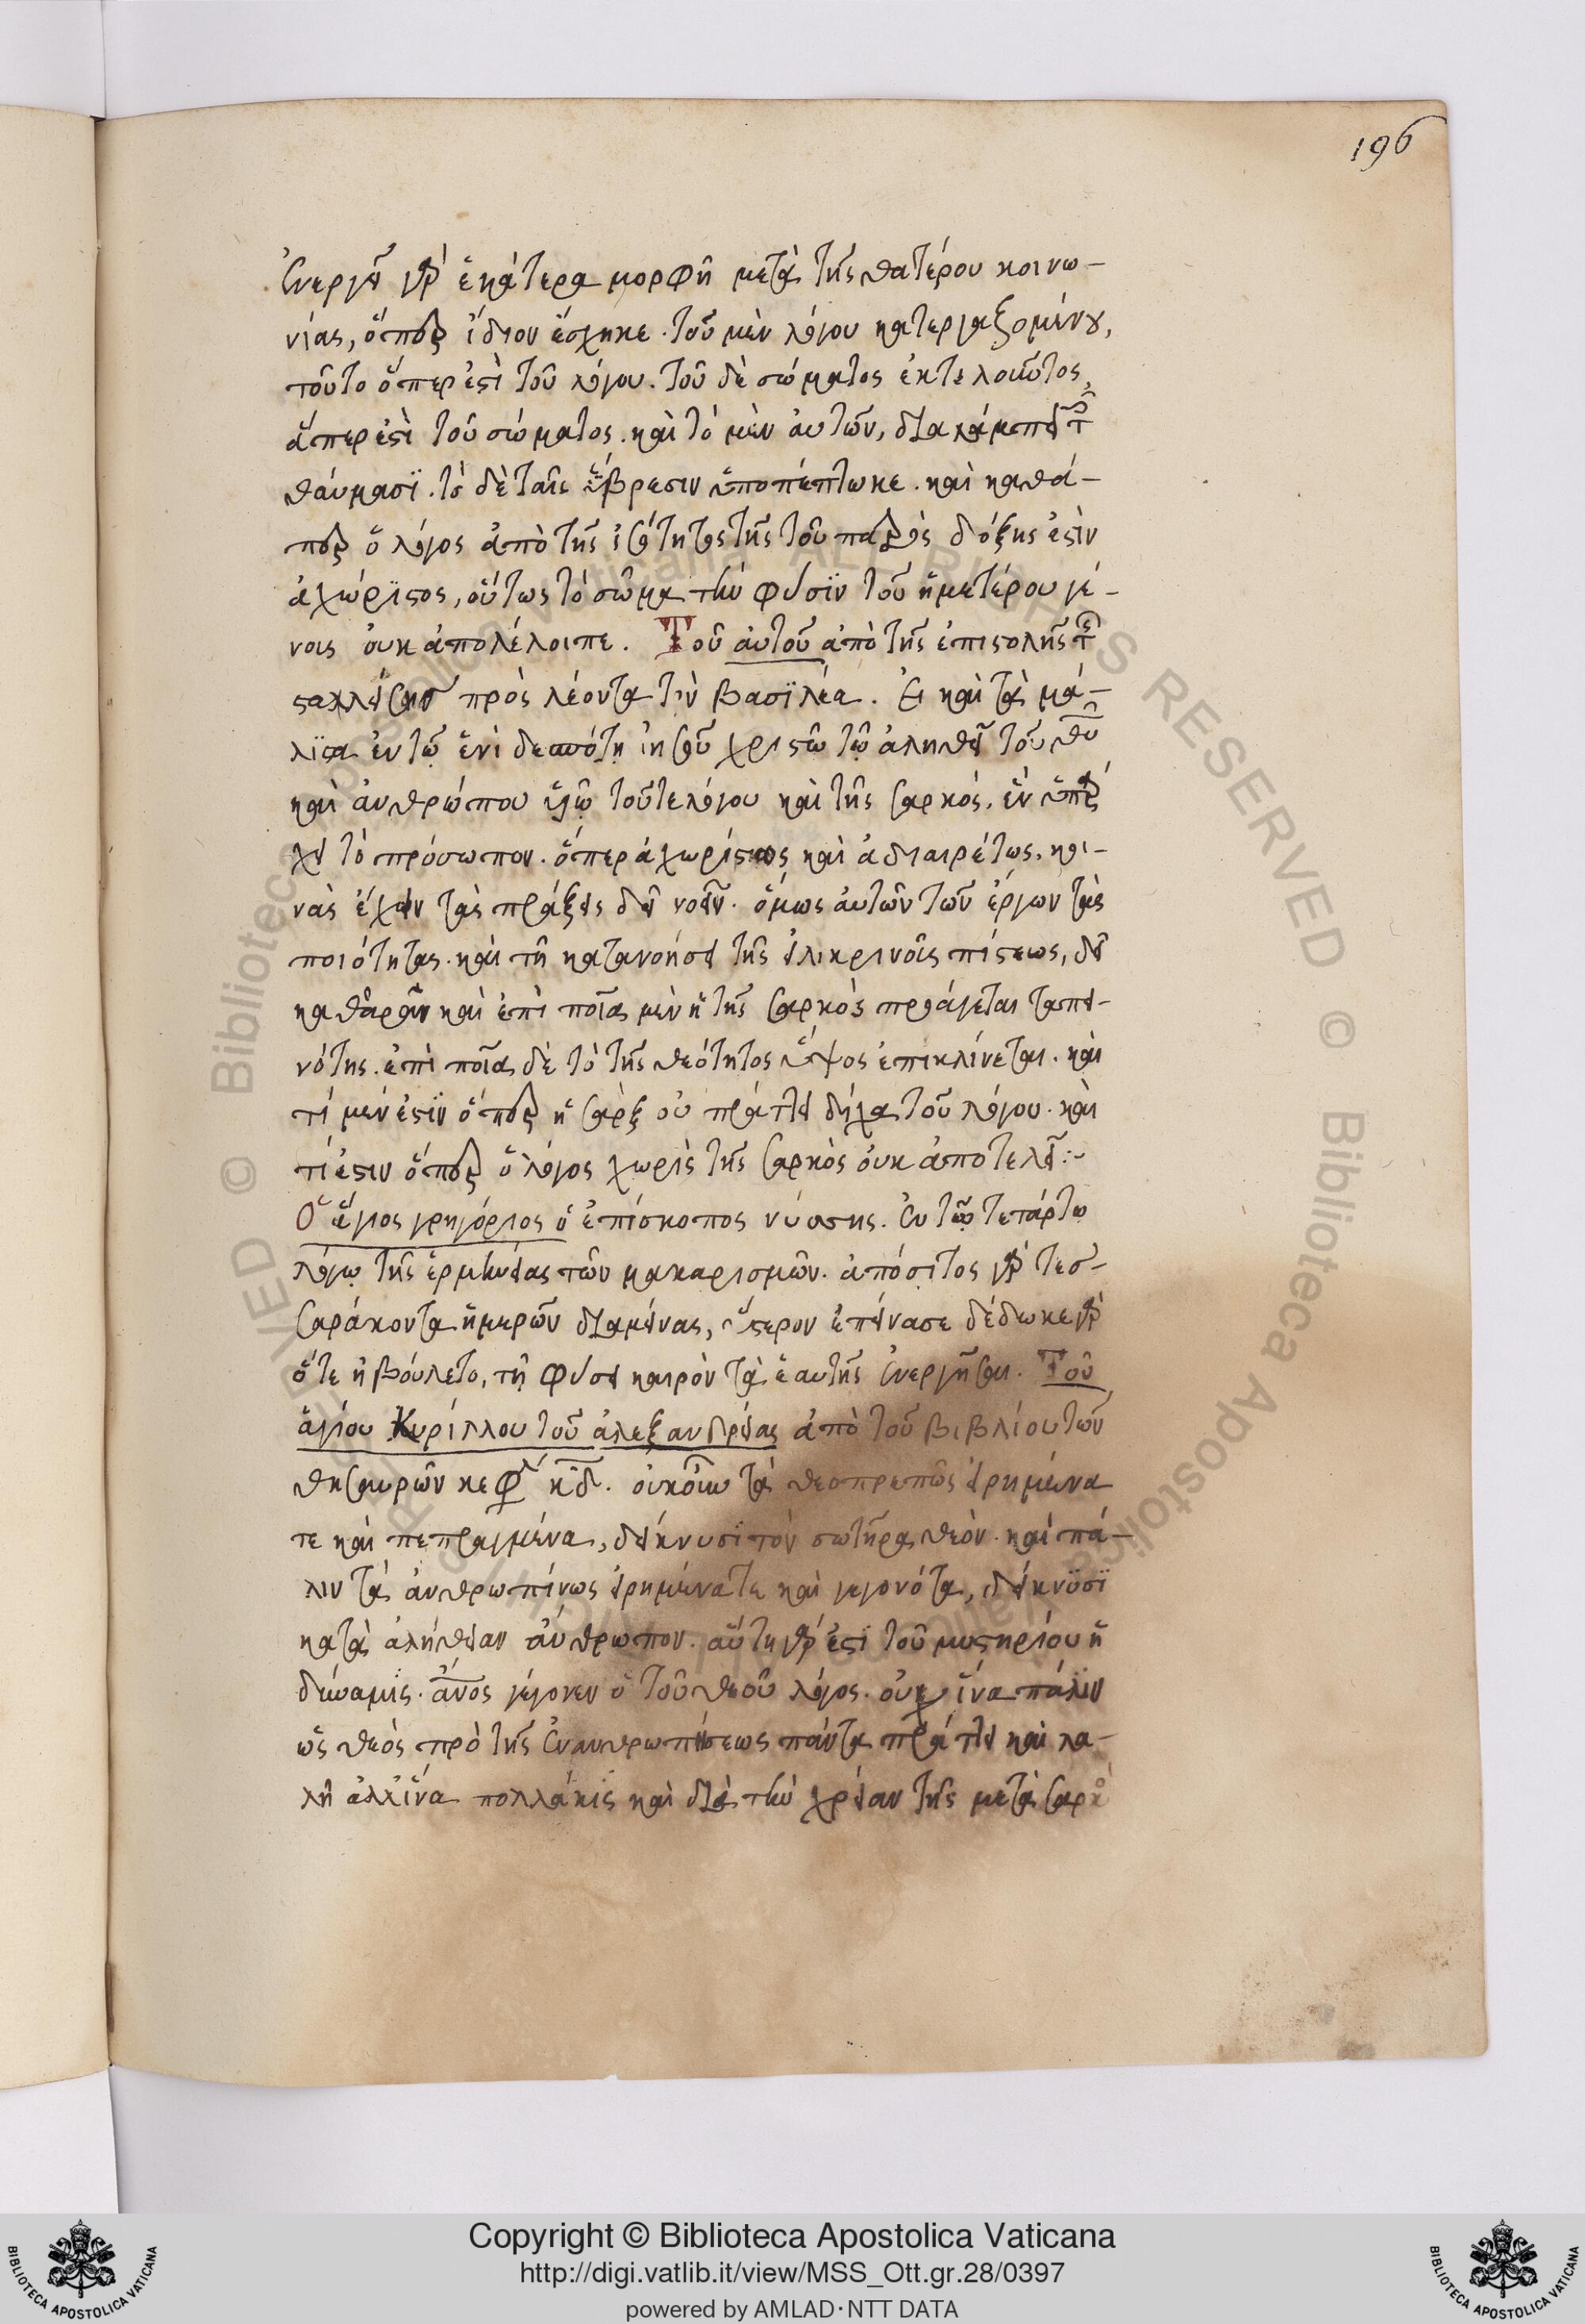 196
ἐνεργεῖ γὰρ ἑκάτερα μορφὴ μετὰ τῆς θατέρου κοινω-
νίας, ὅπερ ἴδιον ἔσχηκε. τοῦ μὲν λόγου κατεργαζομένου,
τοῦτο ὅπερ ἐστὶ τοῦ λόγου. τοῦ δὲ σώματος ἐκτελοῦντος,
ἅπερ ἐστὶ τοῦ σώματος. καὶ τὸ μὲν αὐτῶν, διαλάμπει τοῖς
θαύμασϊ. τὸ δὲ ταῖς ὕβρεσιν ὑποπέπτωκε. καὶ καθά-
περ ὁ λόγος ἀπὸ τῆς ἰσότητος τῆς τοῦ πατρὸς δόξης ἐστὶν
ἀχώριστος, οὕτως τὸ σῶμα τὴν φύσϊν τοῦ ἡμετέρου γέ-
νοις οὐκ ἀπολέλοιπε. Τοῦ αὐτοῦ ἀπὸ τῆς ἐπιστολῆς τῆς
σταλείσης πρὸς λέοντα τὸν βασϊλέα. Εἰ καὶ τὰ μά-
λϊστα ἐν τῷ ἑνὶ δεσπότῃ ἰησοῦ χριστῶ τῷ ἀληθεῖ τοῦ θυ
καὶ ἀνθρώπου υἱῷ τοῦ τε λόγου καὶ τῆς σαρκός, ἓν ὑπάρ
χει τὸ πρόσωπον. ὅπερ ἀχωρίστως καὶ ἀδιαιρέτως, κοι-
νὰς ἔχειν τὰς πράξεις δεῖ νοεῖν. ὅμως αὐτῶν τῶν ἔργων τὰς
ποιότητας. καὶ τῇ κατανοήσει τῆς εἰλικρινοῖς πίστεως, δεῖ
καθορᾶν καὶ ἐπὶ ποῖα μὲν ἡ τῆς σαρκὸς προάγεται ταπει-
νότης. ἐπὶ ποῖα δὲ τὸ τῆς θεότητος ὕψος ἐπικλίνεται. καὶ
τί μέν ἐστϊν ὅπερ ἡ σὰρξ οὐ πράττει δίχα τοῦ λόγου. καὶ
τί ἐστιν ὅπερ ὁ λόγος χωρὶς τῆς σαρκὸς οὐκ ἀποτελεῖ:~
Ὁ ἅγιος γρηγόριος ὁ ἐπίσκοπος νύσσης. ἐν τῷ τετάρτω
λόγῳ τῆς ἑρμηνείας τῶν μακαρισμῶν. ἀπόσιτος γὰρ τεσ-
σαράκοντα ἡμερῶν διαμείνας, ὕστερον ἐπείνασε δέδωκε γὰρ
ὅτε ἠβούλετο, τῇ φύσει καιρὸν τὰ ἑαυτῆς ἐνεργῆσαι. Τοῦ
ἁγίου Κυρίλλου τοῦ ἀλεξανδρείας ἀπὸ τοῦ βιβλίου τῶν
θησαυρῶν κεφ κδ. οὐκοῦν τὰ θεοπρεπῶς εἰρημένα
τε καὶ πεπραγμένα, δείκνυσϊ τὸν σωτῆρα θεόν. καὶ πά-
λιν τὰ ἀνθρωπίνως εἰρημένα τε καὶ γεγονότα, δείκνϋσϊ
κατὰ ἀλήθειαν ἄνθρωπον. αὕτη γὰρ ἐστϊ τοῦ μυστηρίου ἡ
δύναμϊς. ανος γέγονεν ὁ τοῦ θεοῦ λόγος. οὐχ ἵνα πάλϊν
ὡς θεὸς πρὸ τῆς ἐνανθρωπήσεως πάντα πράττει καὶ λα-
λῆ ἀλλ' ἵνα πολλάκϊς καὶ διὰ τὴν χρείαν τῆς μετὰ σαρκὸ
Copyright © Biblioteca Apostolica Vaticana
http://digi.vatlib.it/view/MSS_Ott.gr.28/0397
powered by AMLAD·NTT DATA